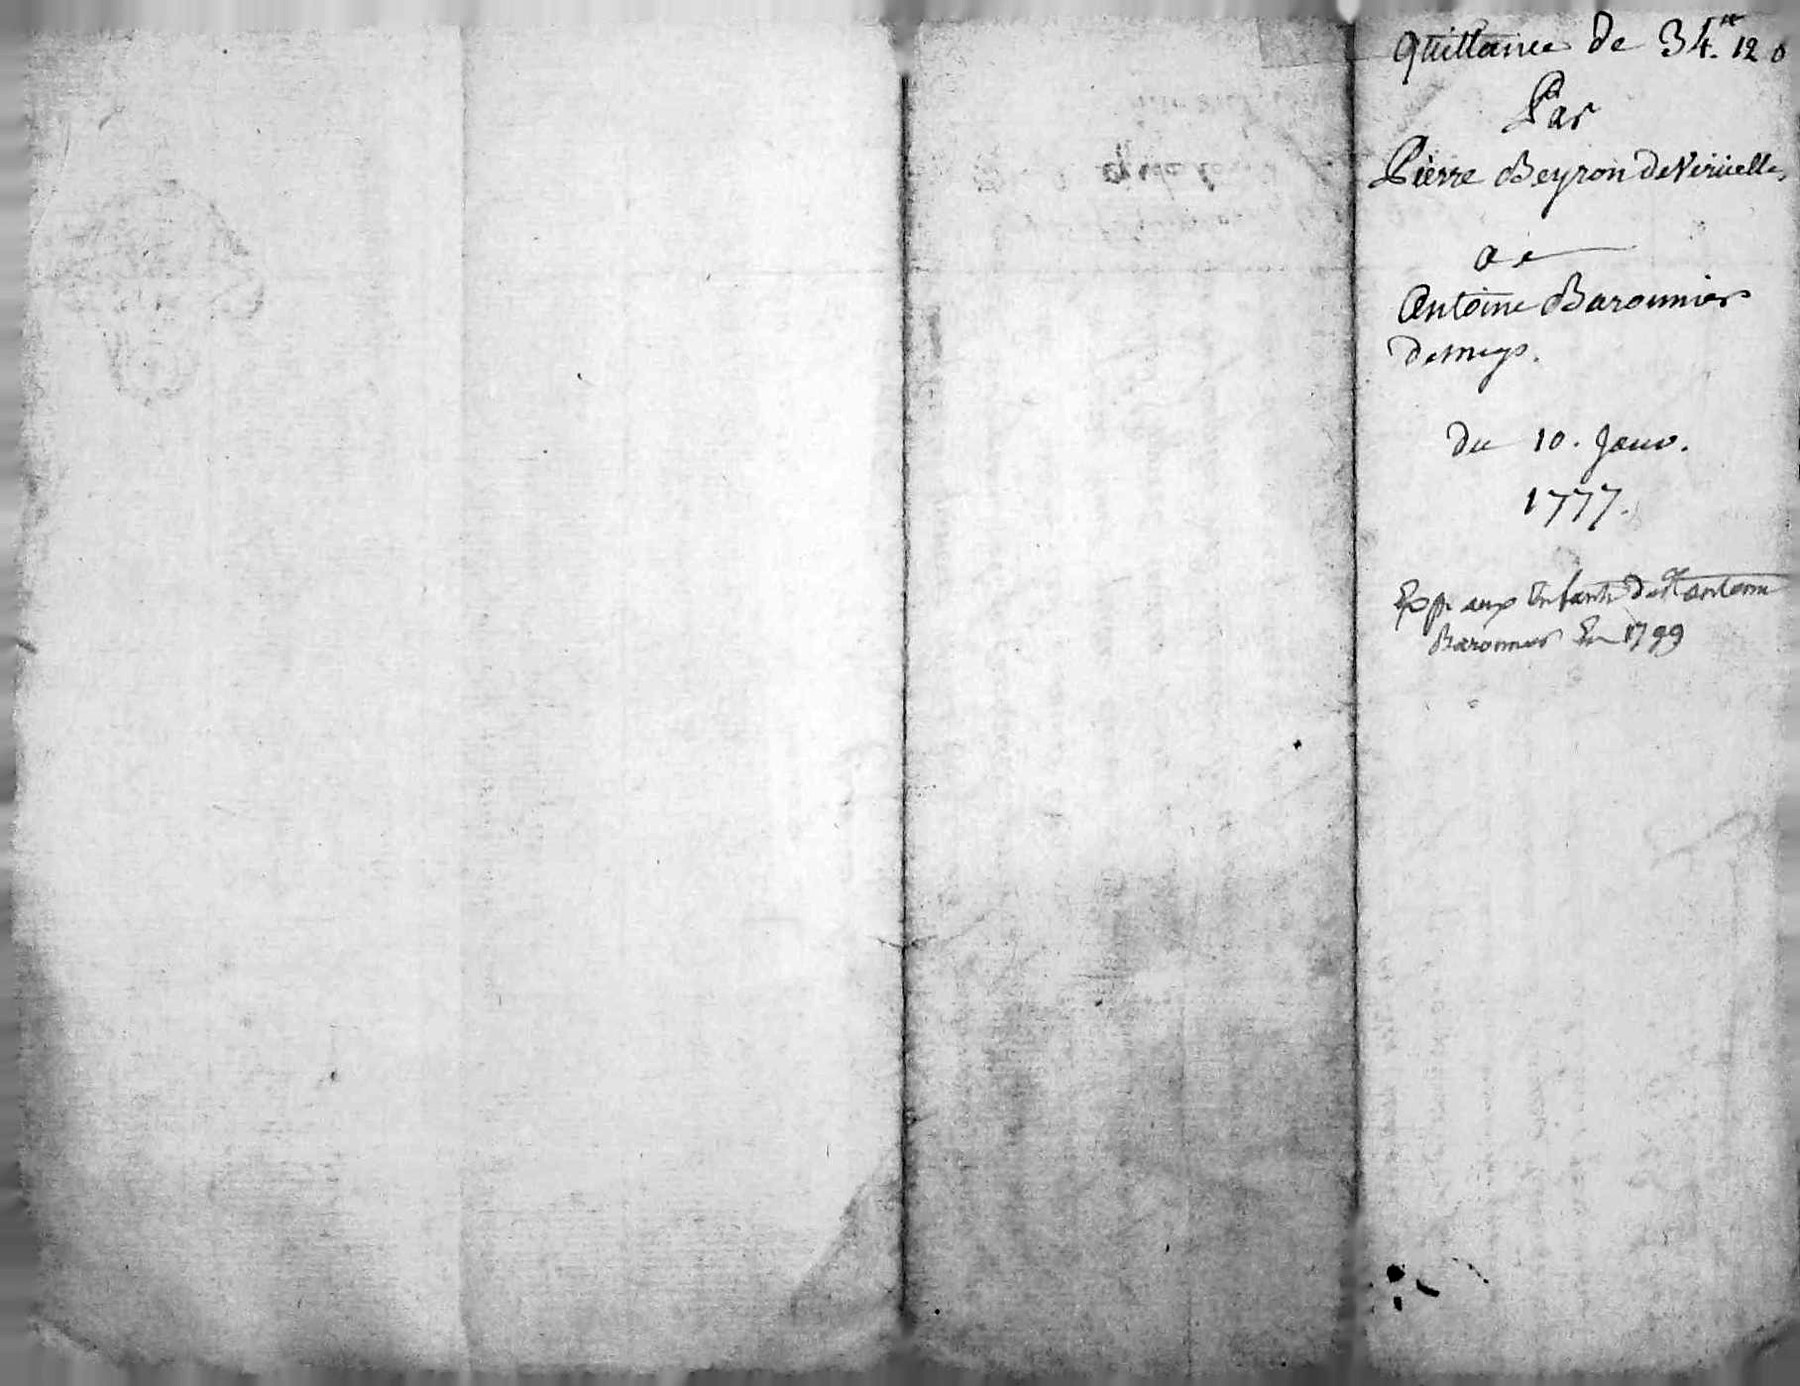 Quittance de 34.ₗₜ 12 s
Par
Pierre Beyron de Viricelle,
a
Antoine Baronnier
de meys.
du 10. Janv.
1777.
Exp. aux Enfants de antoine
Baronnier En 1799